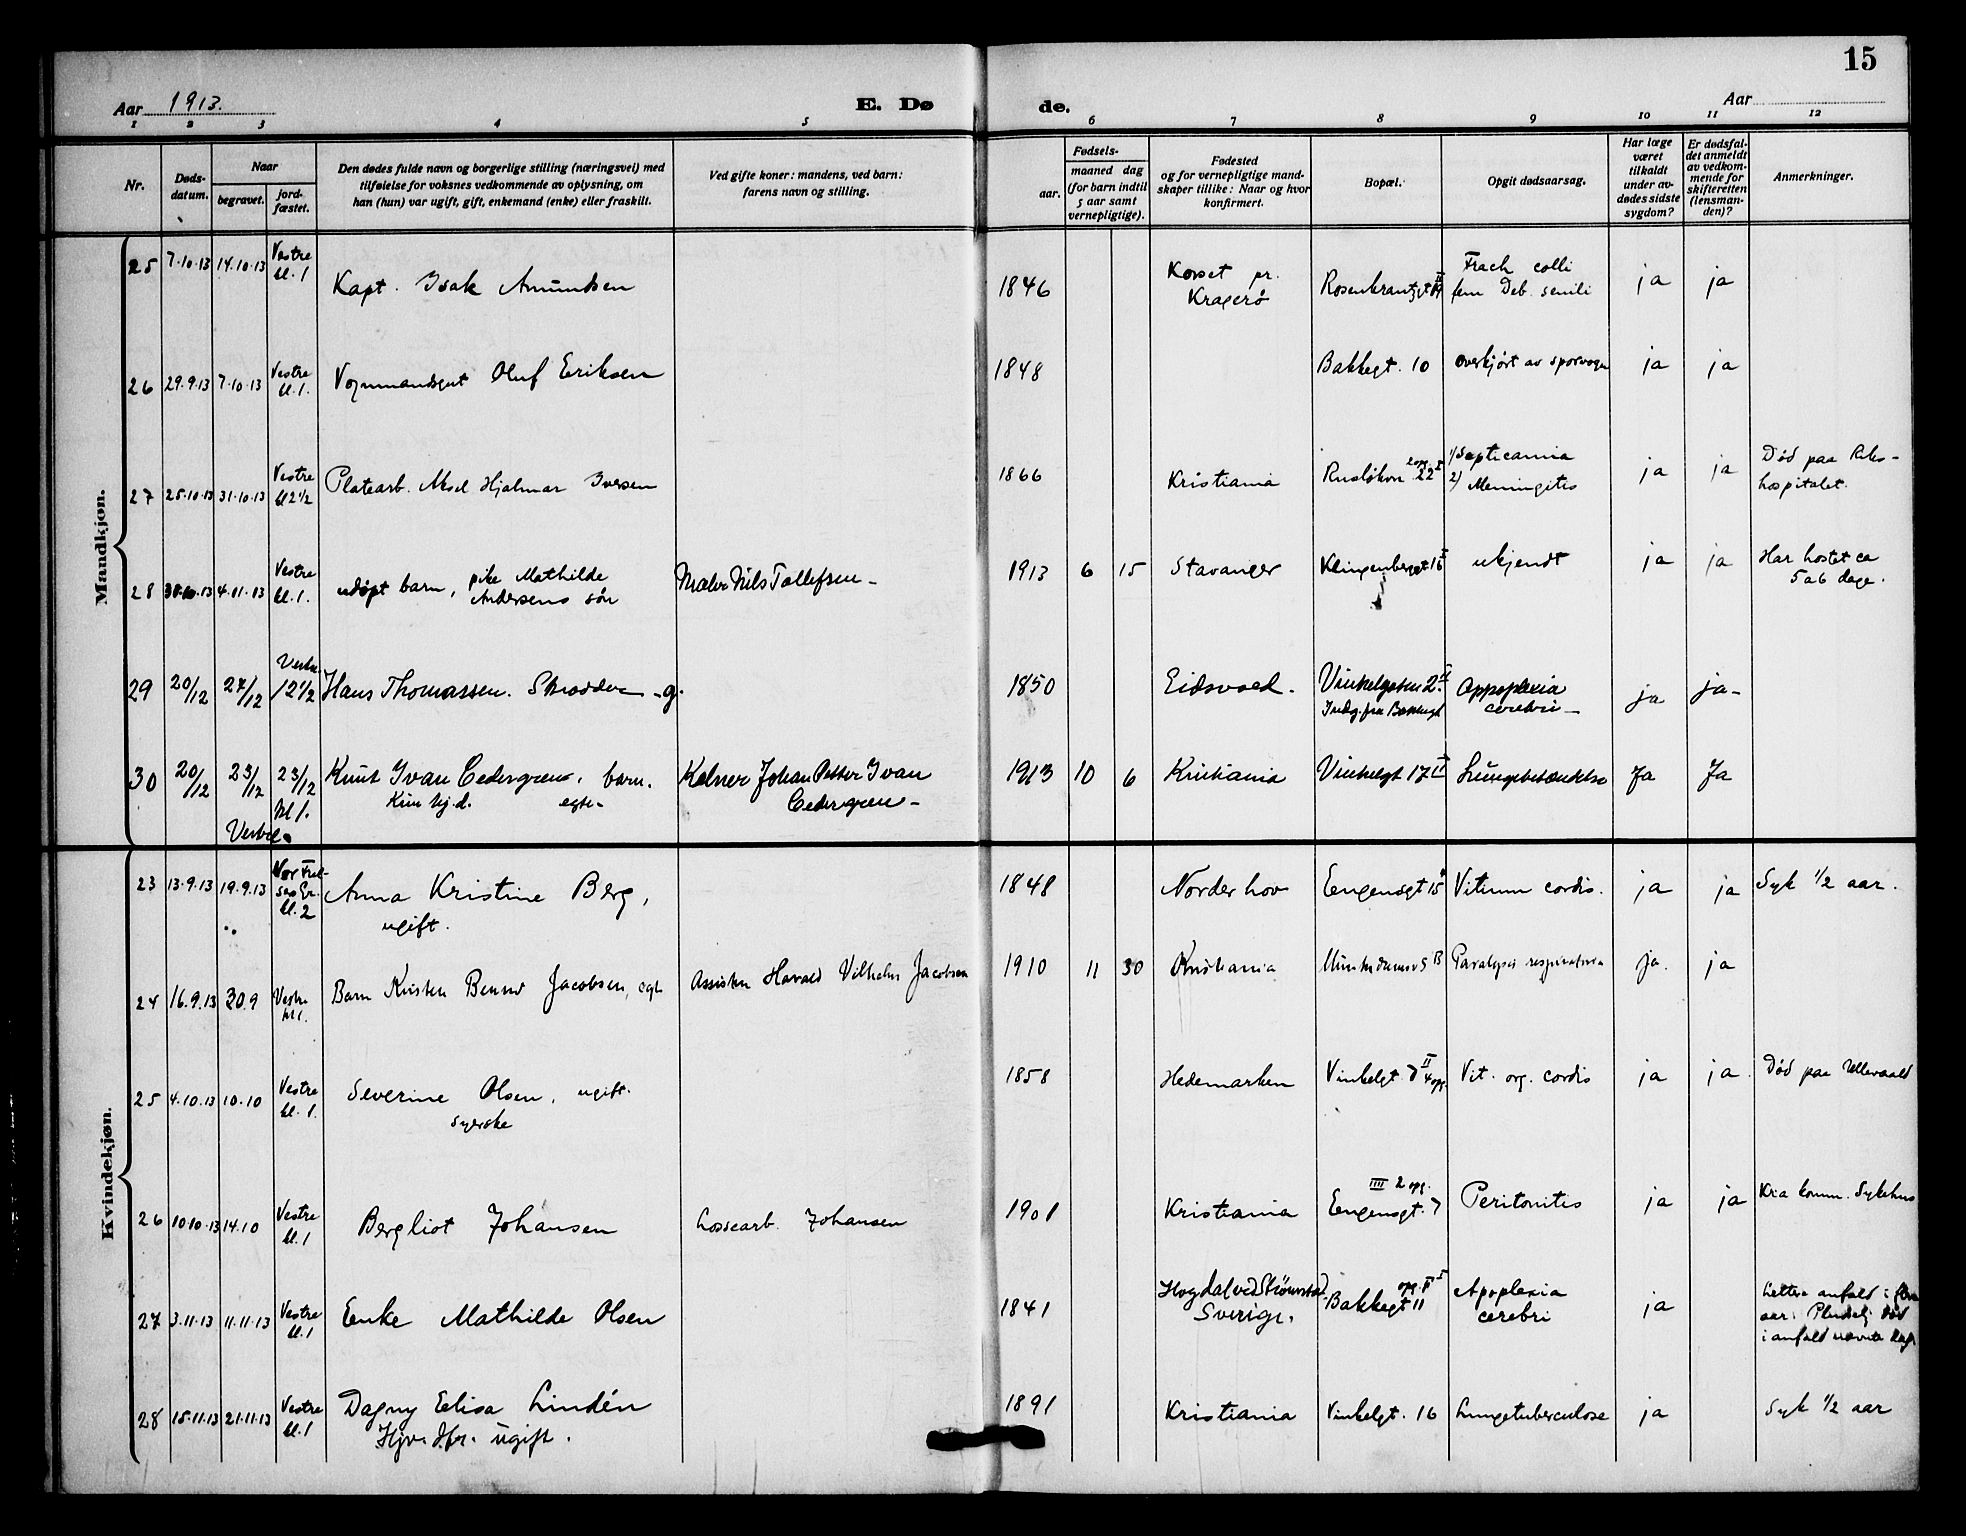 15
Aar 1913.
E. Dø de.
Aar
1 2 3 4 5 6 7 8 9 10 11 12
Nr.
Døds-
datum.
Naar
begravet.
jord-
fæstet.
Den dødes fulde navn og borgerlige stilling (næringsvei) med
tilføielse for voksnes vedkommende av oplysning, om
han (hun) var ugift, gift, enkemand (enke) eller fraskilt.
Ved gifte koner: mandens, ved barn:
farens navn og stilling.
Fødsels-
aar.
maaned dag
(for barn indtil
5 aar samt
vernepligtige).
Fødested
og for vernepligtige mand-
skaper tillike: Naar og hvor
konfirmert.
Bopæl.
Opgit dødsaarsag.
Har læge
været
tilkaldt
under av-
dødes sidste
sygdom?
Er dødsfal-
det anmeldt
av vedkom-
mende for
skifteretten
(lensman-
den)?
Anmerkninger.
Mandkjøn.
25 7.10.13 14.10.13 Vestre
kl. 1
Kapt. Isak Amundsen
1846
Korset pr.
Kragerø
Rosenkrantzgt
Frach colli
fem Deb. senili
ja ja
26 29.9.13 7.10.13 Vestre
kl. 1.
Vognmandsgut Oluf Eriksen
1848
Bakkegt. 10
Overkjørt av sporvogn
ja ja
27 25.10.13 31.10.13 Vestre
kl 2 1/2
Platearb. Aksel Hjalmar Iversen
1866
Kristiania
Ruseløkvn 22
1) Septicæmia
2) Meningitis
ja ja
Død paa Riks-
hospitalet.
28 4.11.13 Vestre
kl. 1.
udøpt barn, pike Mathilde
Andersens søn
Maler Nils Tollefsen -
1913 6 15
Stavanger
Klingenberggt 15
ukjendt
ja ja
Har hostet ca
5 a 6 dage.
29 20/12 27/12 Vestre
12 1/2
Hans Thomassen. Skrædder - g.
1850
Eidsvold.
Vinkelgaten 2 II
Indg. fra Bakkegt
Appoplexia
cerebri -
ja ja -
30 20/12 23/12 23/12
kl 1.
Vestre
Knut Ivan Cedergren, barn.
egte-
Kelner Johan Petter Ivan
Cedergren -
1913 10 6
Kristiania
Vinkelgt 17 II
Lungebetændelse
Ja Ja
Kvindekjøn.
23 13.9.13 19.9.13 Vor Frel-
sers Gr.
kl. 2
Anna Kristine Berg,
ugift.
1848
Norderhov
Eengensgt 15
Vitium cordis.
ja ja
Syk 1/2 aar.
24 16.9.13 30.9 Vestre
kl 1.
Barn Kirsten Jacobsen, egte
Assisten Harald Vilhelm Jacobsen
1910 11 30
Kristiania
Munkedamsv 5 B
Paralysis respiratoria
ja. ja
25 4.10.13 10.10 Vestre
kl. 1.
Severine Olsen, ugift.
syerske
1858
Hedemarken
Vinkelgt 7 II
4 opg.
Vit. org. cordis
ja ja
Død paa Ullevaald
26 10.10.13 14.10 Vestre
kl. 1
Bergliot Johansen
Lossearb. Johansen
1901
Kristiania
III 2 opg.
Eengensgt. 7
Peritonitis
ja ja
Kria komm. Sykehus
27 3.11.13 11.11.13 Vestre
kl. 1
Enke Mathilde Olsen
1841
Hogdal ved Strömstad
Sverige.
Bakkegt 11
Apoplexia
cerebri
ja
Lettere anfald i flere
aar. Pludselig død
i anfald nævnte dag
28 15.11.13 21.11.13 Vestre
kl. 1
Dagny Elisa Lindén
Hjv. Jfr. ugift.
1891
Kristiania
Vinkelgt. 16
Lungetuberculose
ja
Syk 1/2 aar